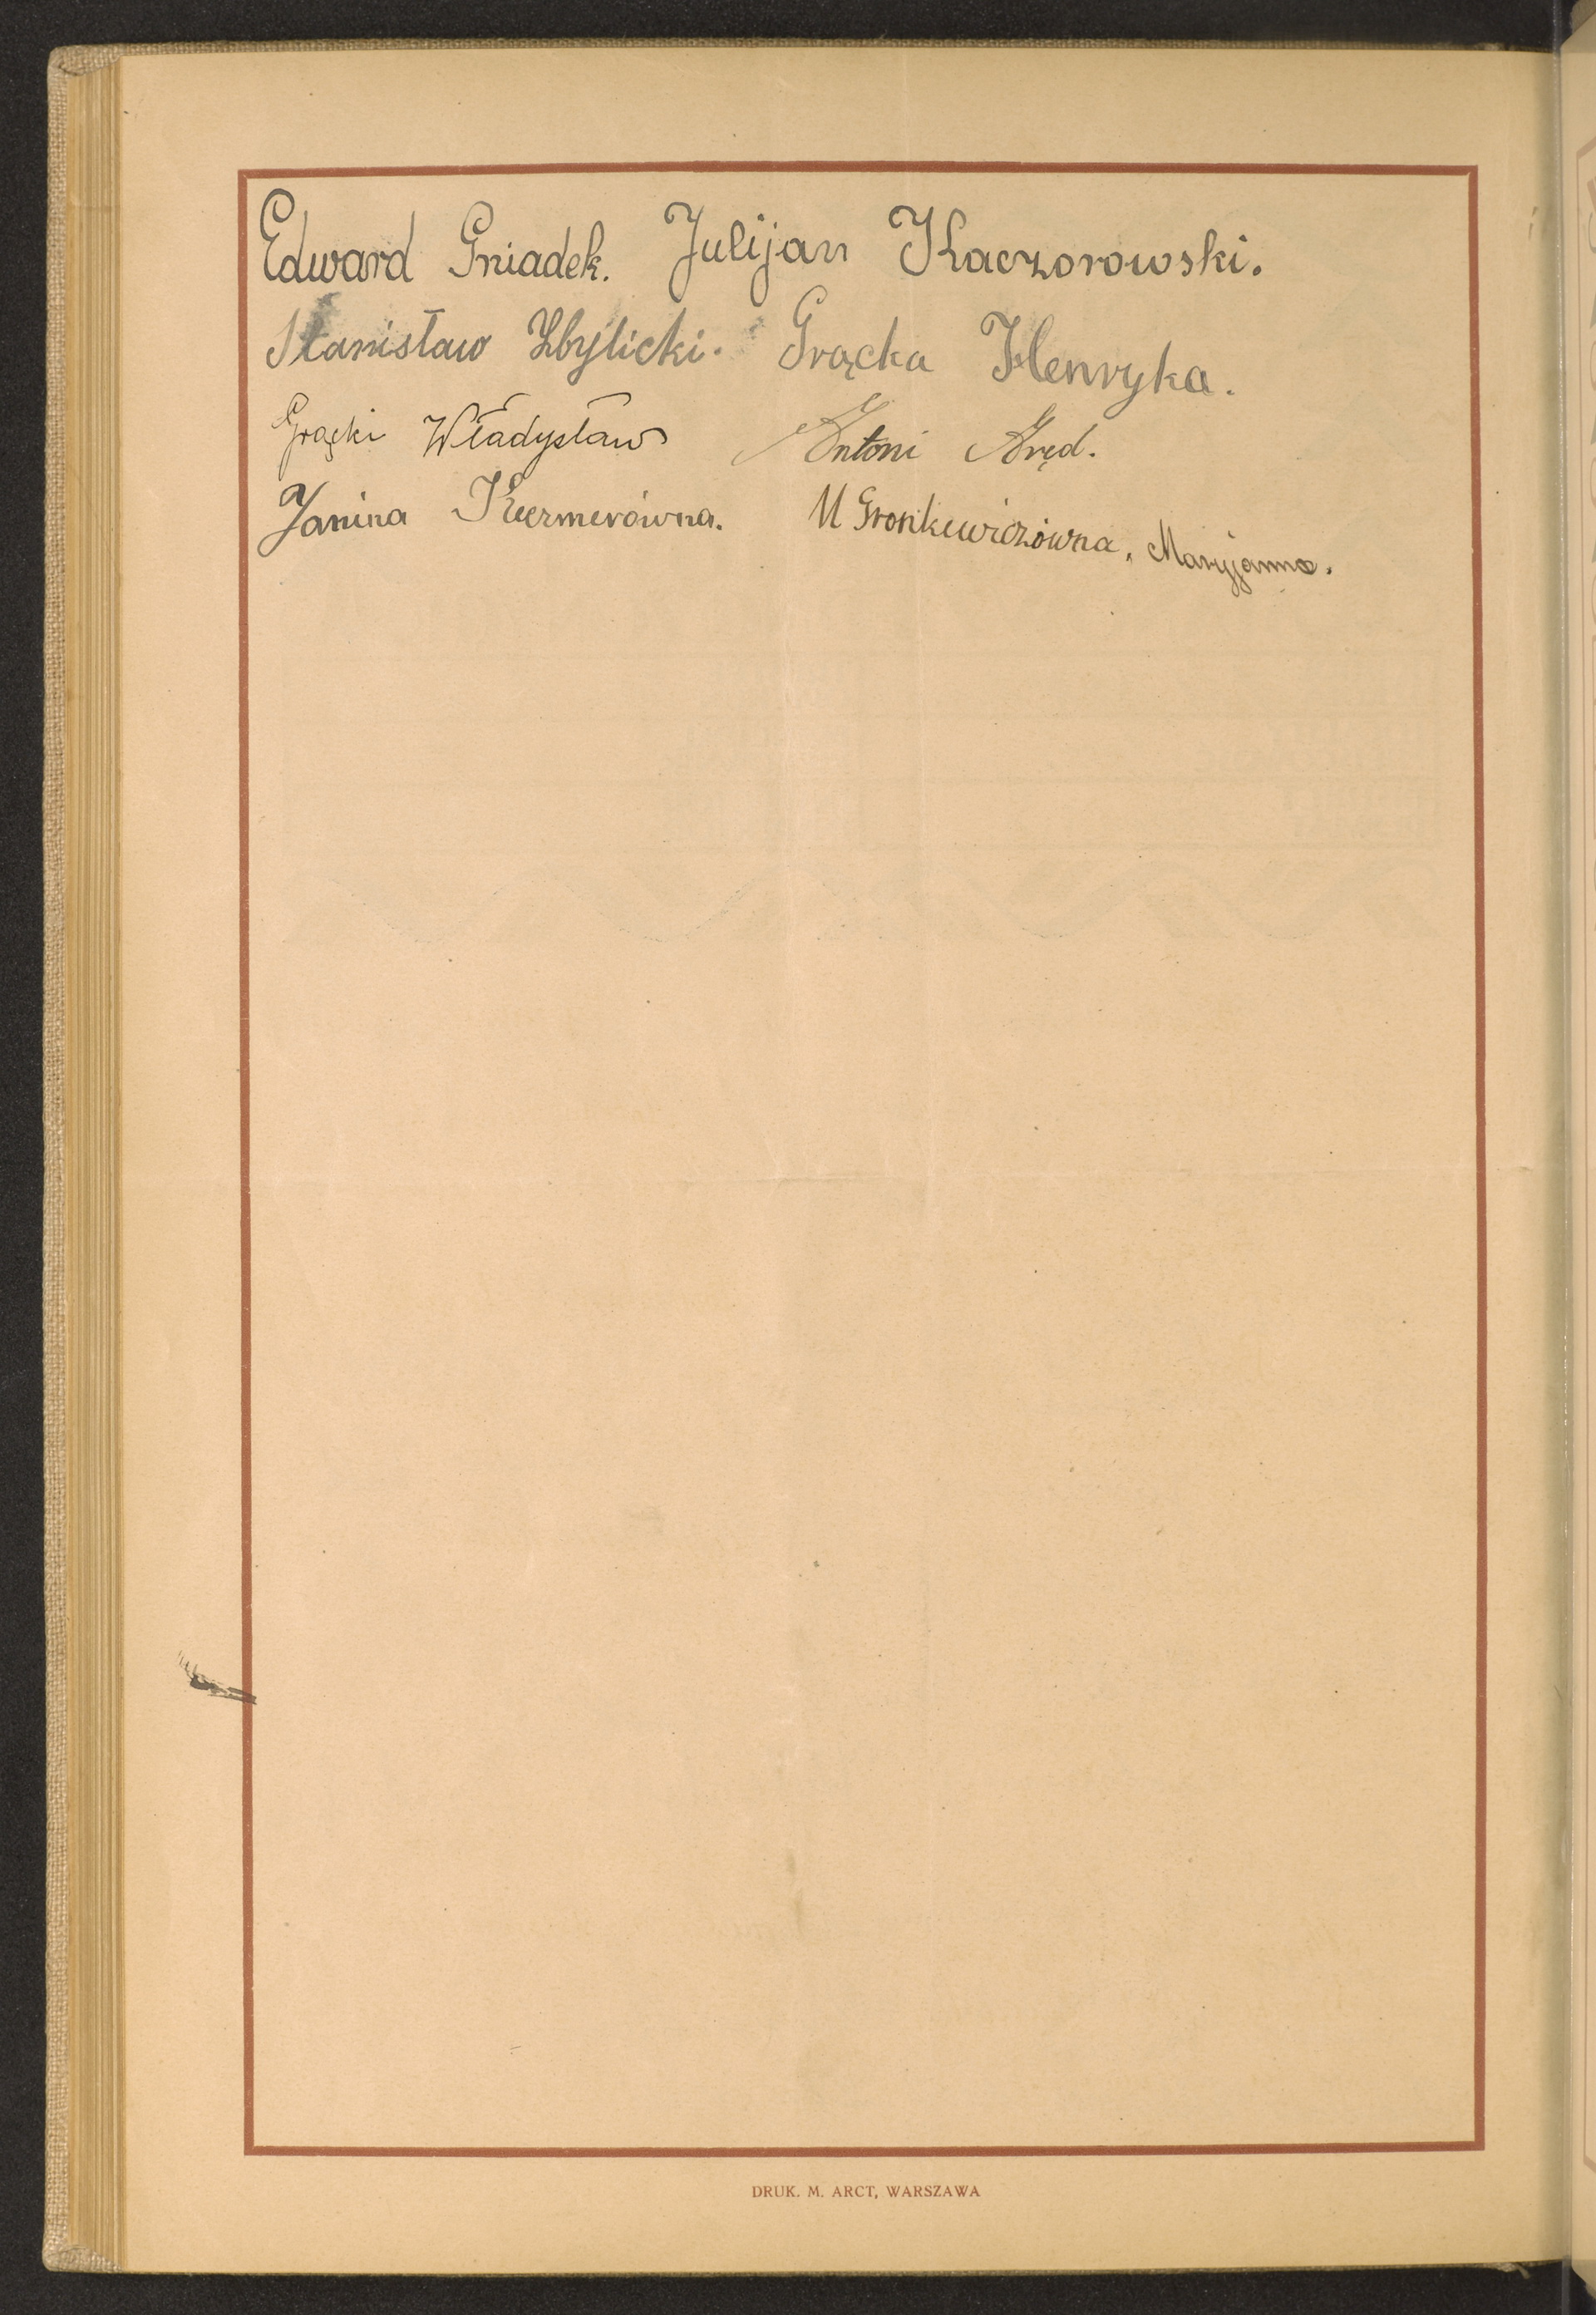 Edward Gniadek. Julijan Kaczorowski.
Stanisław Zbylicki. Grącka Henryka.
Grącki Władysław Antoni Kręd.
Janina Kuzmerówna. M Gronkiewiczówna, Maryjanna.
DRUK. M. ARCT, WARSZAWA